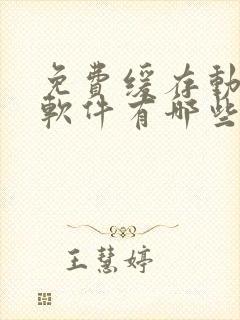 免費緩存動
軟件有哪些
王慧婷